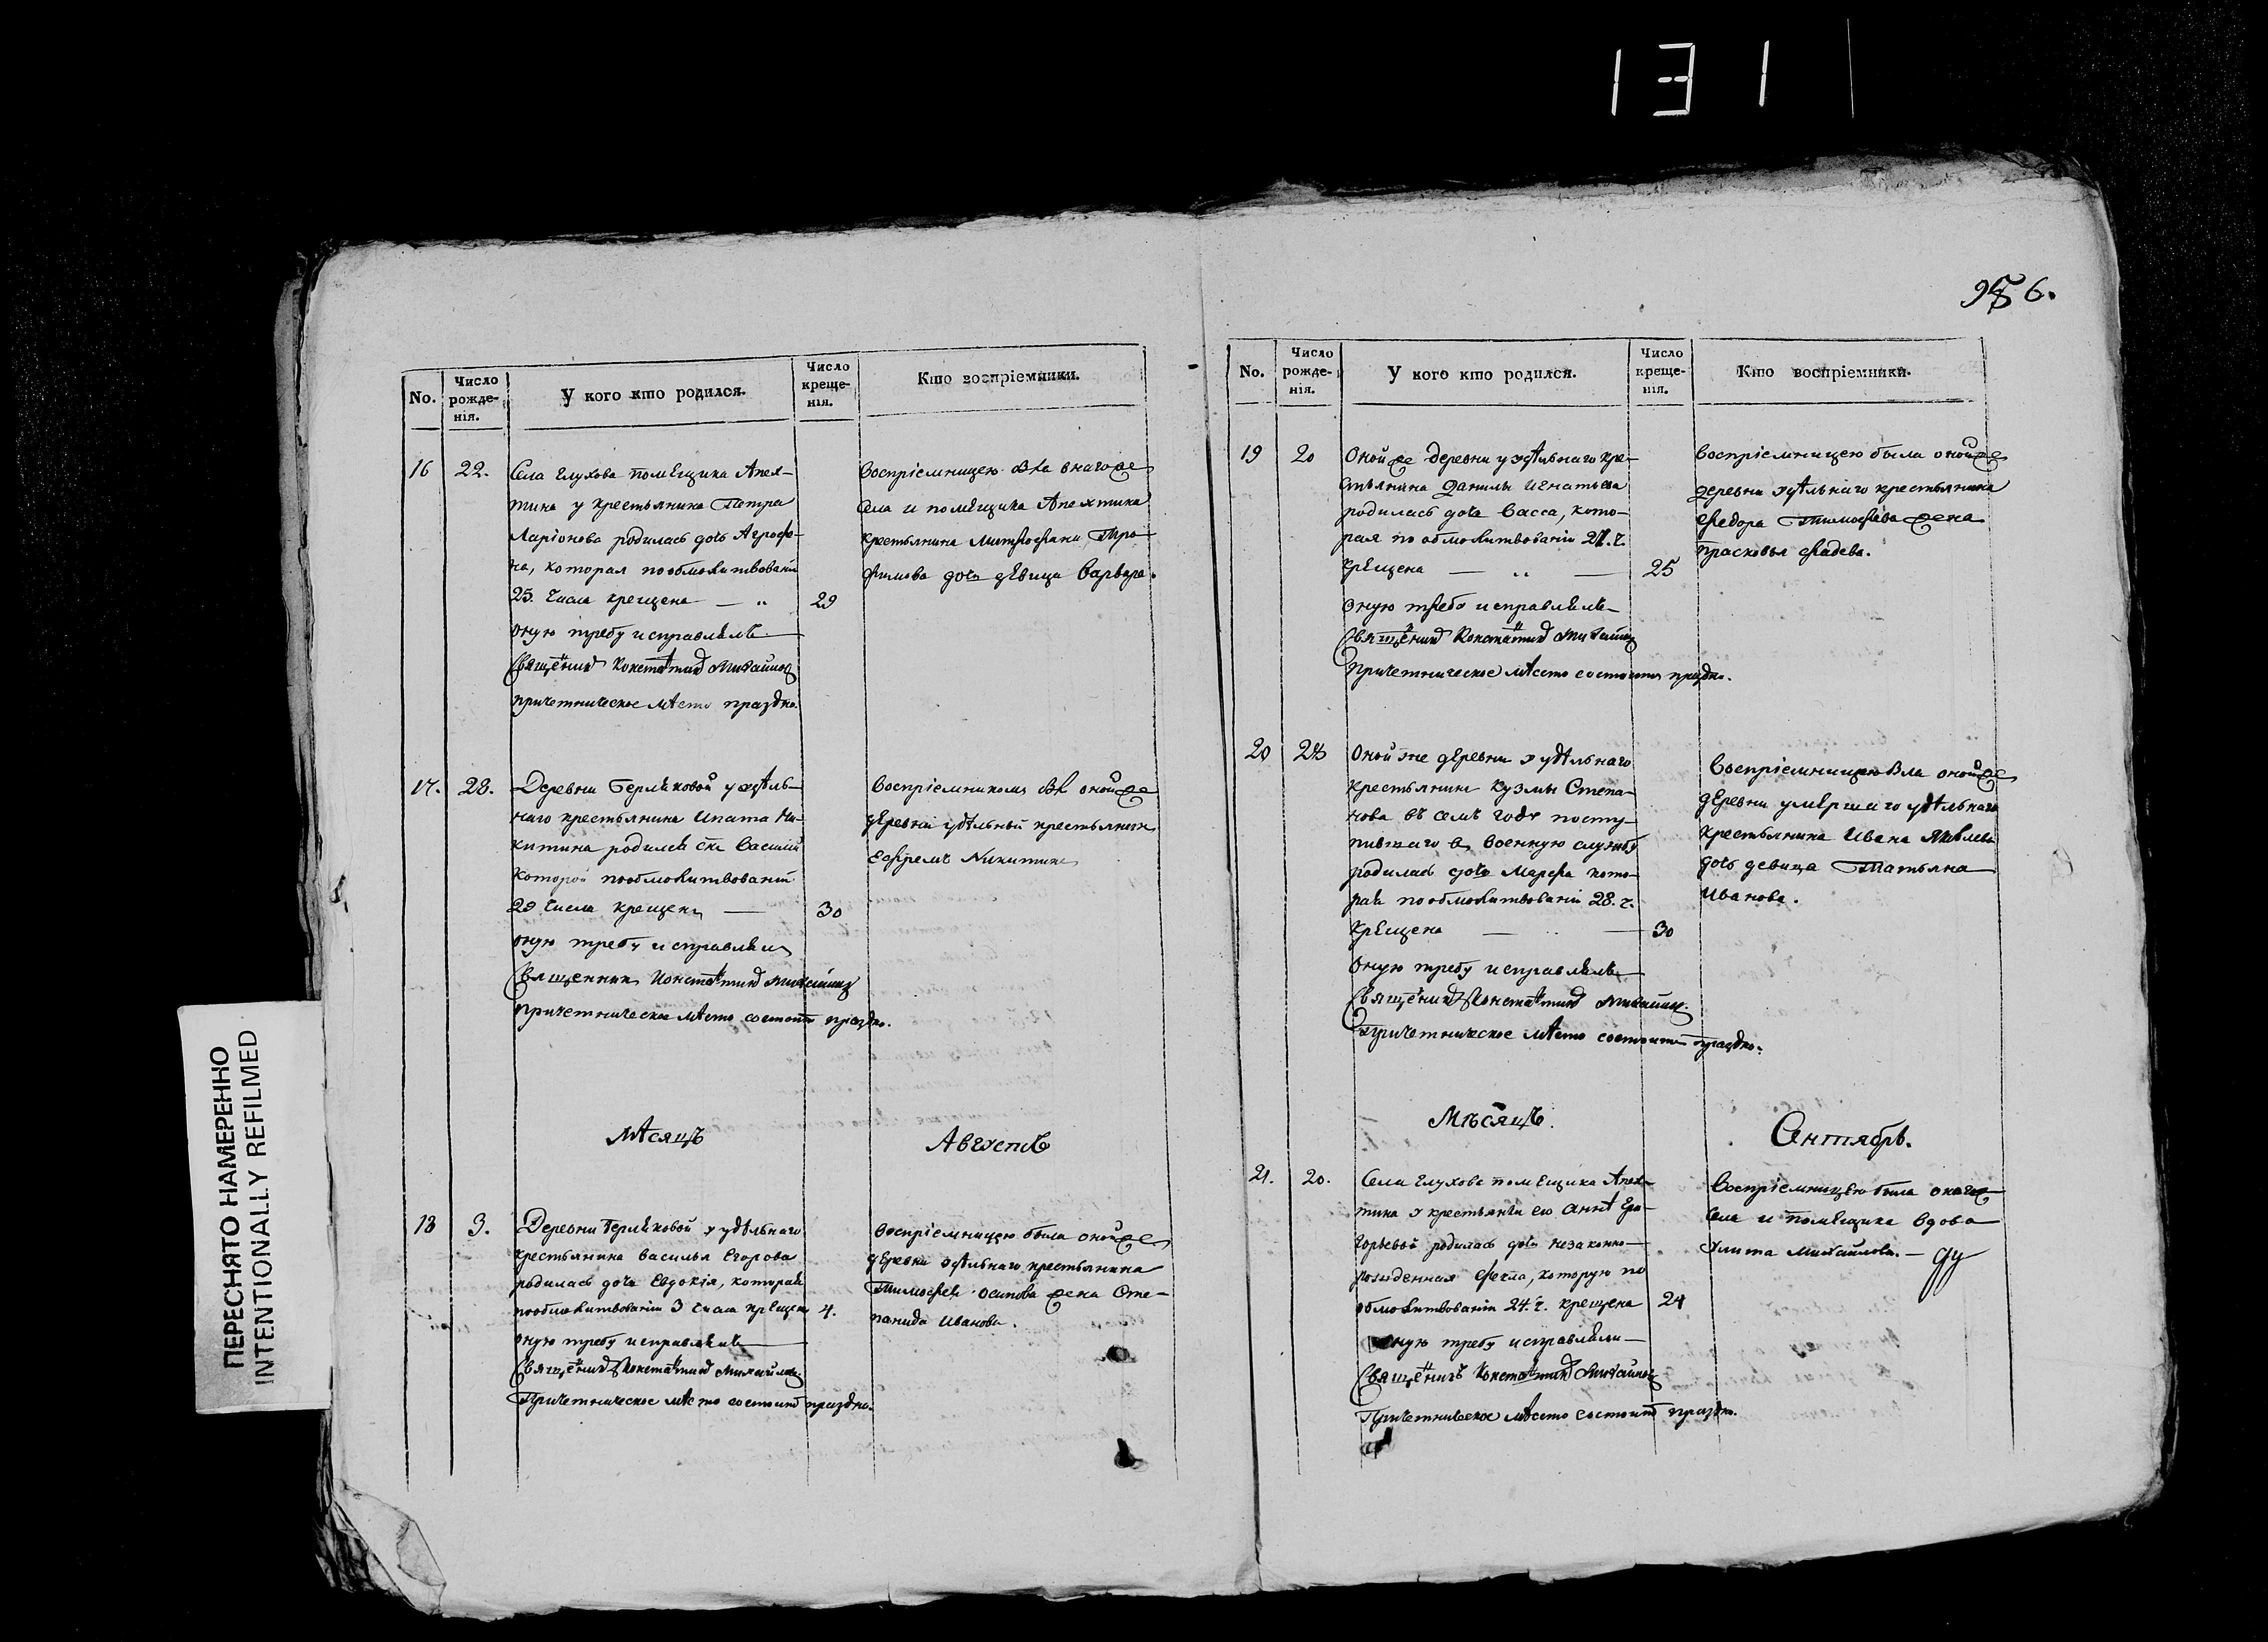 1311
956.
No.
Число рожде-нія.
У кого кто родился.
Число креще-нія.
Кто воспріемники.
16
22.
Села Глухова помещика Апех-
тина у крестьянина Петра
Ларіонова родилась дочь Агрофе-
на, которая пообмолитвованіи
25. числа крещена — „
29
оную требу исправлялъ
Священникъ Константинъ Михайловъ
причетническое мѣсто праздно.
Воспріемницею была онагоже
села и помещика Апехтина
крестьянина Митрофана Тро-
фимова дочь девица Варвара.
17.
28.
Деревни Берляковой у удѣль-
наго крестьянина Ипата Ни-
китина родился сынъ Василій
которой пообмолитвованіи
29 числа крещенъ —
30
оную требу исправлялъ
Священникъ Константинъ Михайловъ
причетническое мѣсто состоитъ праздно.
Воспріемникомъ былъ онойже
деревни удѣльный крестьянинъ
Ефремъ Никитинъ
мѣсяцъ
Августъ
18
3.
Деревни Берляковой у удѣльнаго
крестьянина Василья Егорова
родилась дочь Евдокія, которая
пообмолитвованіи 3 числа крещена
4.
оную требу исправлялъ
Священникъ Константинъ Михайловъ
Причетническое мѣсто состоитъ праздно.
воспріемницею была онойже
деревни удѣльнаго крестьянина
Тимофея Осипова жена Сте-
панида Иванова.
No.
Число рожде-нія.
У кого кто родился.
Число креще-нія.
Кто воспріемники.
19
20
Онойже деревни у удѣльнаго кре-
стьянина Данилы Игнатьева
родилась дочь Васса, кото-
рая по обмолитвованіи 21. ч.
крещена — „ —
25
оную требу исправлялъ
Священникъ Константинъ Михайловъ
Причетническое мѣсто состоитъ праздно.
Воспріемницею была онойже
деревни удѣльнаго крестьянина
Федора Тимофеева жена
Прасковья Фадева.
20
28
Оной же деревни у удѣльнаго
крестьянина Кузмы Степа-
нова въ семъ году посту-
пившаго въ военную службу
родилась дочь Марфа кото-
рая пообмолитвованіи 28. ч.
крещена — „ —
30
Оную требу исправлялъ
Священникъ Константинъ Михайловъ
Причетническое мѣсто состоитъ праздно.
Воспріемницею была онойже
деревни умершаго удѣльнаго
крестьянина Ивана Яковлева
дочь девица Татьяна
Иванова.
Мѣсяцъ.
Сентябрь.
21.
20.
Села Глухова помещика Апех-
тина у крестьянки ево Анны Гри-
горьевой родилась дочь незаконно-
рожденная Фекла, которую по
обмолитвованіи 24. ч. крещена
24
оную требу исправляли
Священникъ Константинъ Михайловъ
Причетническое мѣсто состоитъ праздно.
Воспріемницею была онагоже
села и помещика вдова
Улита Михайлова. —
ПЕРЕСНЯТО НАМЕРЕННО
INTENTIONALLY REFILMED